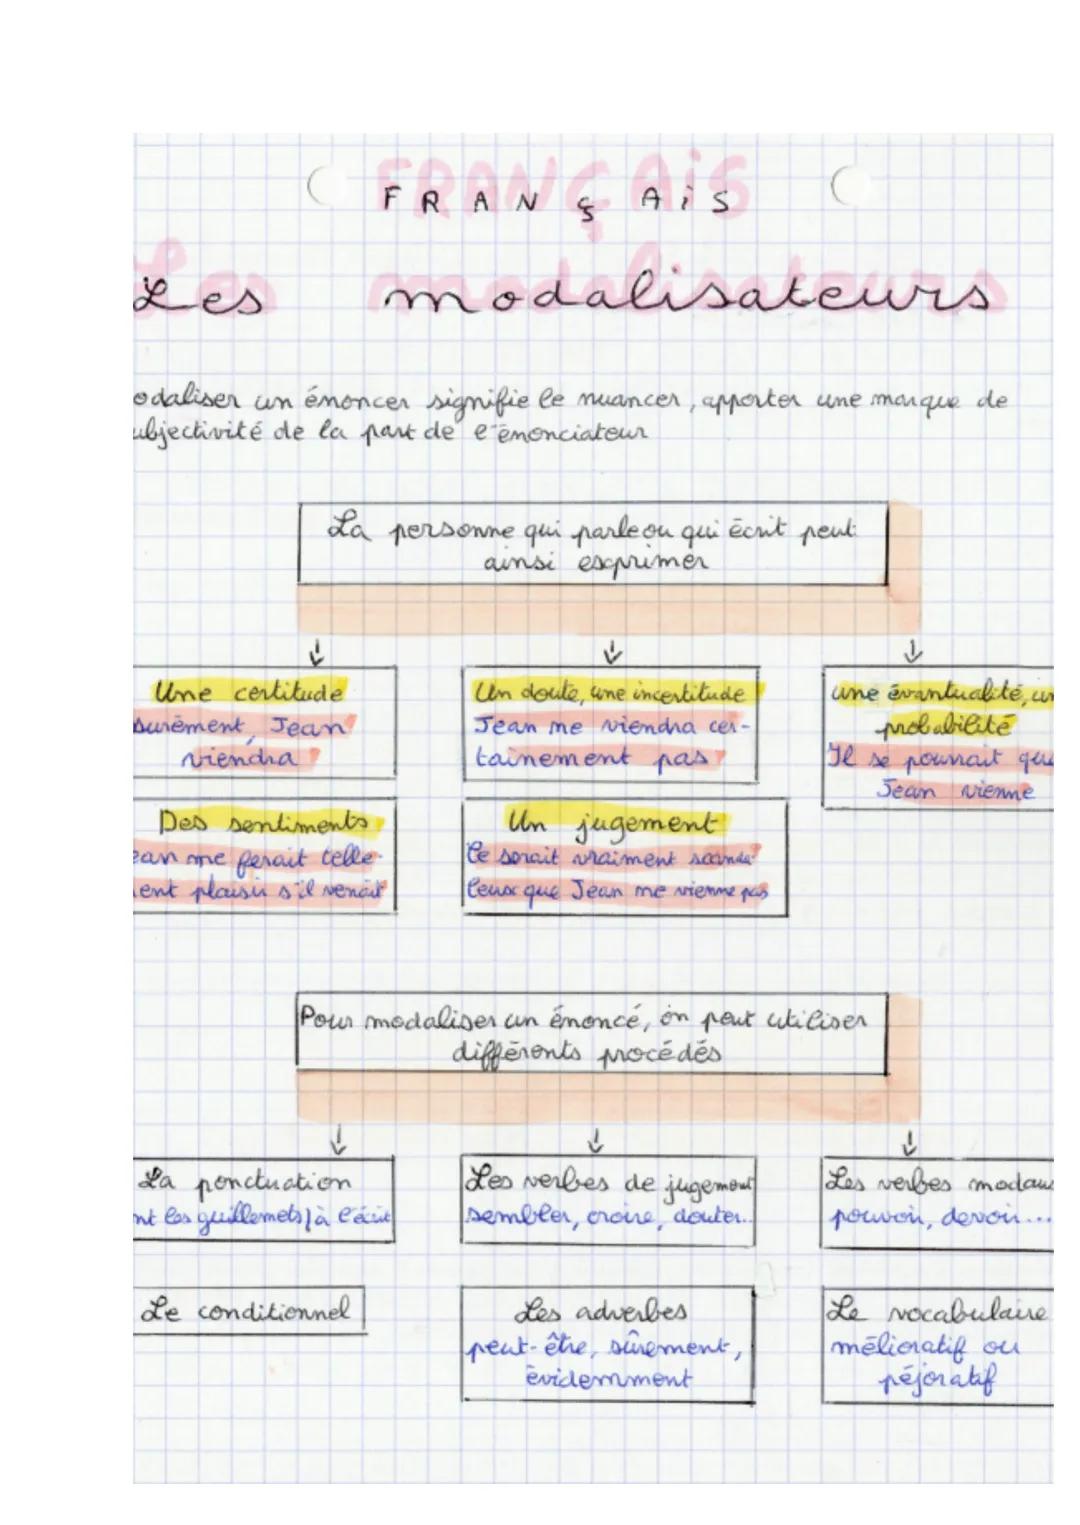 FRANÇAiS
FRANÇAiS
Les modalisateurs
odaliser un énoncer signifie le nuancer, apporter une marque de
ubjectivité de la part de l'énonciateur
La personne qui parle ou qui écrit peut
ainsi exprimer
Une certitude
surement, Jean
viendra
Un doute, une incertitude
Jean me viendra cer-
tainement pas
une évantualité, un
probabilité
Il se pourrait que
Jean vienne
Des sentiments
ean me ferait telle-
ent plaisir s'il venait
Un jugement
Ce serait vraiment scanda-
leux que Jean me vienne pas
Pour modaliser un énoncé, on peut utiliser
différents procédés
La ponctuation
nt les guillemets) à l'écrit
Les verbes de jugement
sembler, croire, douter...
Les verbes modau
pouvoir, devoir...
Le conditionnel
Les adverbes
peut-être, sûrement,
évidemment
Le vocabulaire
mélioratif ou
péjoratif